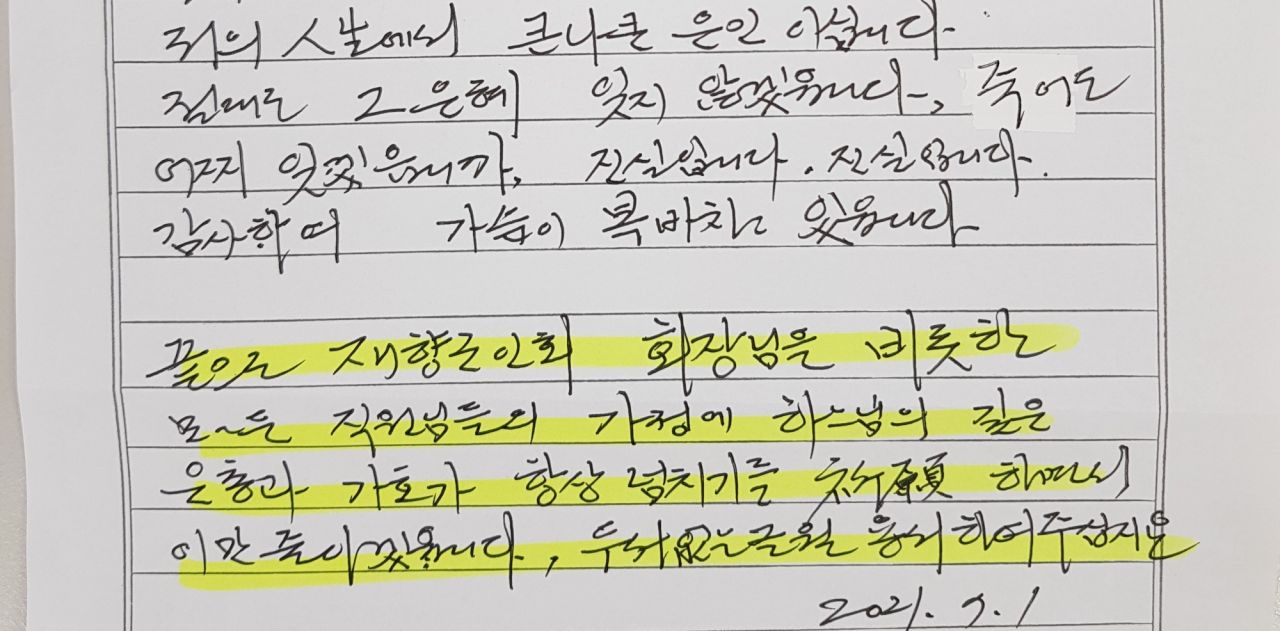 저의 人生에서 큰나큰 은인 이십니다.
절대로 그 은혜 잊지 않겠읍니다, 죽어도
어찌 잊겠읍니까, 진실입니다. 진실입니다.
감사하며 가슴이 복바차 있읍니다.
끝으로 재향군인회 회장님을 비롯한
모~든 직원님들의 가정에 하느님의 깊은
은총과 가호가 항상 넘치기를 祈願 하면서
이만 줄이겠읍니다., 두서없는 글월 용서하여주십시요
2021. 7. 1